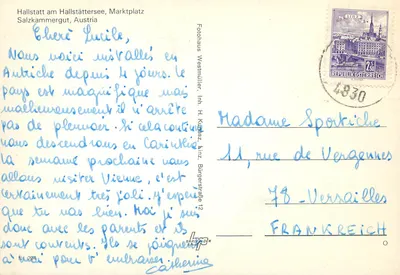 Hallstatt am Hallstättersee, Marktplatz
Salzkammergut, Austria
Cheré Lucile,
Nous voici installés en
Autriche depuis 4 jours. Le
pays est magnifique mais
malheureusement il n'arrête
pas de pleuvoir. Si cela continue
nous descendrons en Carinthie
la semaine prochaine nous
allons visiter Vienne, c'est
certainement très joli. J'espère
que tu vas bien. Moi je suis
donc avec les parents et ils
sont contents. Ils se joignent
à moi pour t'embrasser.
Catherine
Fotohaus Westmüller, Inh. H. Linz, Bürgerstraße 12
REPUBLIK ÖSTERREICH
4830
Madame Sportiche
11, rue de Vergennes
78-Versailles
FRANKREICH